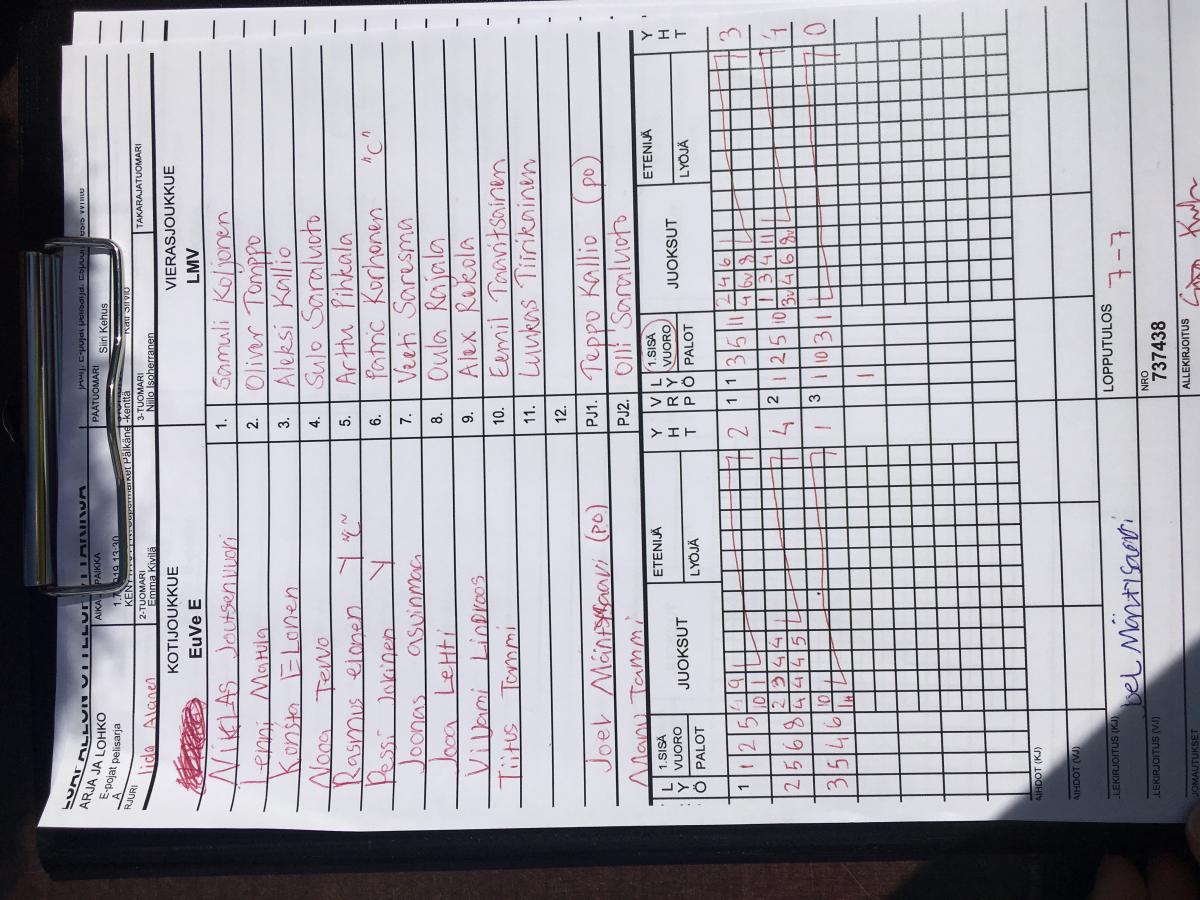 ARJA JA LOHKO
E-pojat pelisarja
A
AIKA
PAIKKA
PÄÄTUOMARI
Siiri Kehus
RJURI
Iida Ahonen
2-TUOMARI
Emma Kivilä
3-TUOMARI
Niilo Isoherranen
TAKARAJATUOMARI
KOTIJOUKKUE
EuVe E
VIERASJOUKKUE
LMV
NiKLAS Joutsenvuori 1. Samuli Koljonen
Lenni Matula 2. Oliver Tomppo
Konsta Elonen 3. Aleksi Kallio
Nooa Tervo 4. Sulo Saraluoto
Rasmus elonen Y "C" 5. Arttu Pihkala
Pessi Jokinen Y 6. Patric Korhonen "C"
Joonas asuinmaa 7. Veeti Saresma
Jooa Lehti 8. Oula Rajala
Viljami Lindroos 9. Alex Rekola
Tiitus Tommi 10. Eemil Taavitsainen
11. Luukas Tiirikainen
12.
Joel (PO) PJ1. Teppo Kallio (PO)
Manu Tammi PJ2. Olli Saraluoto
L Y Ö 1.SISÄ VUORO PALOT JUOKSUT ETENIJÄ LYÖJÄ Y H T V R P L Y Ö 1.SISÄ VUORO PALOT JUOKSUT ETENIJÄ LYÖJÄ Y H T
1 1 2 5 9 1 2 1 1 3 5 11 2 4 6 1 3
10 1 4 6v 8
2 5 6 8 2 3 4 4 4 2 1 2 5 10 1 3 4 11 4
4 4 4 5 3v 4 6 8v
3 5 4 6 10 1 3 1 10 3 1 0
1
AIHDOT (KJ)
AIHDOT (VJ)
LEKIRJOITUS (KJ)
Joel Mäntysaari
LOPPUTULOS 7-7
LEKIRJOITUS (VJ)
NRO
737438
UOMAUTUKSET
ALLEKIRJOITUS